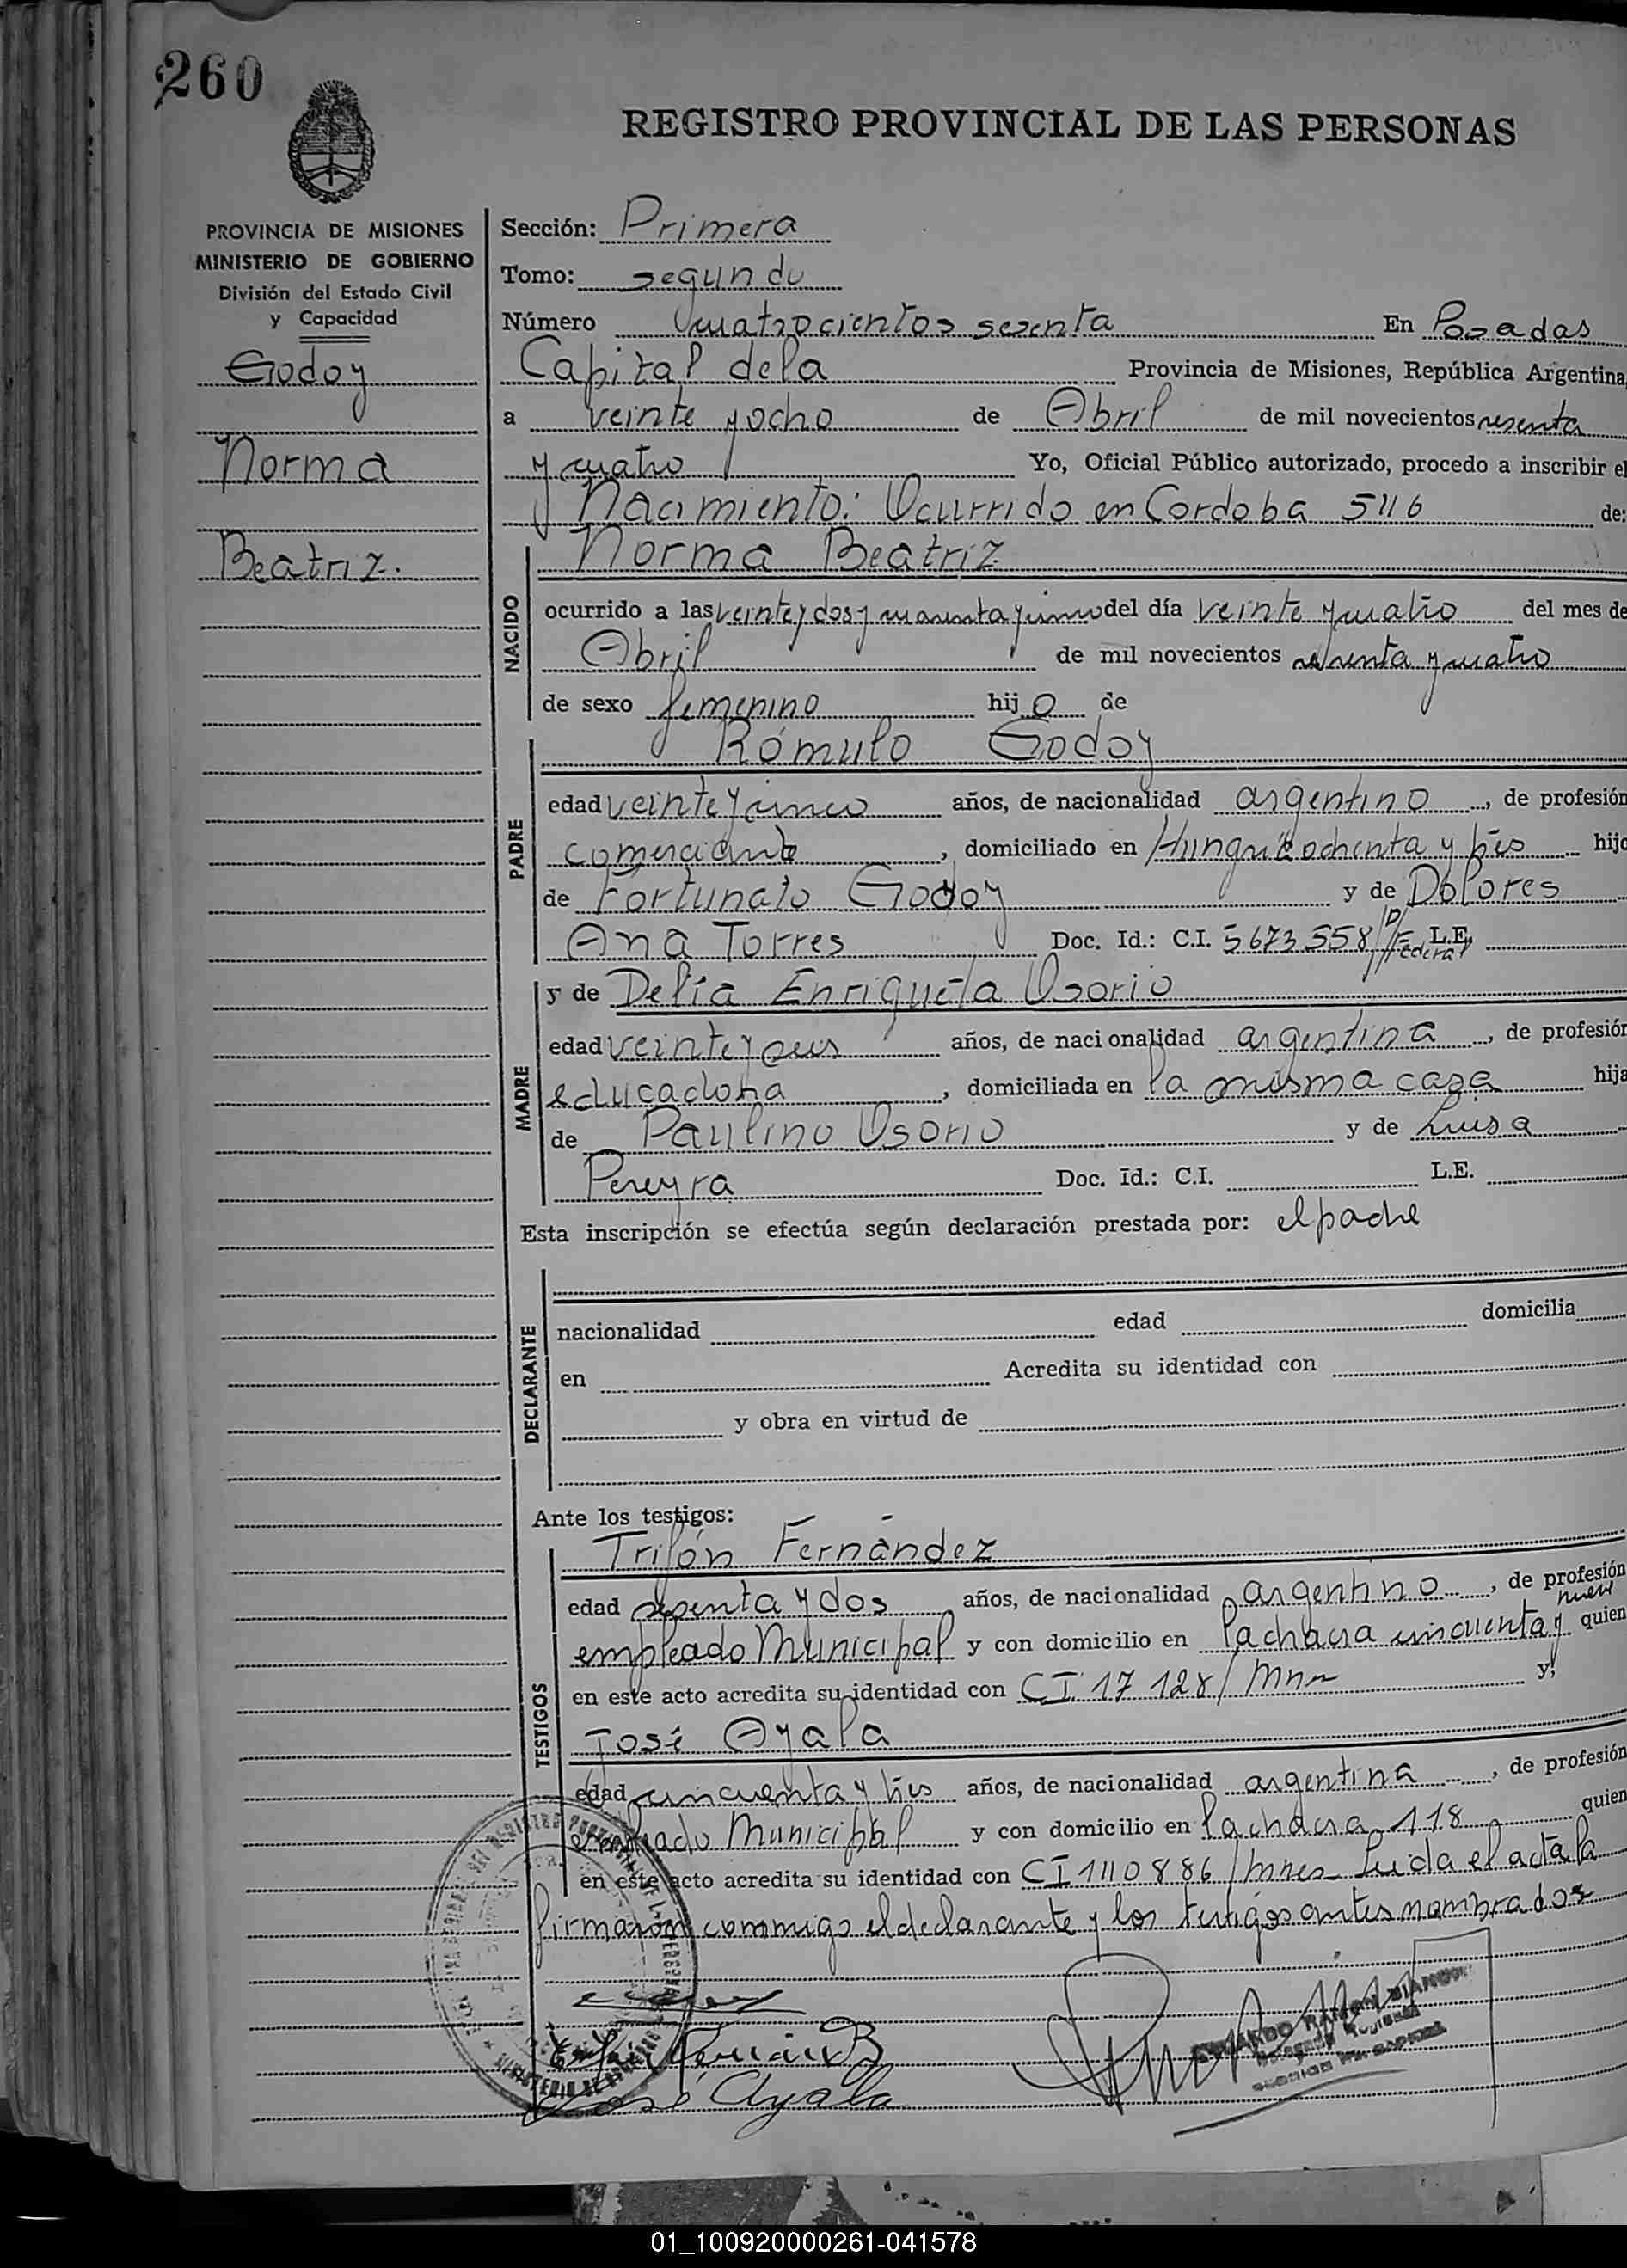 260
REGISTRO PROVINCIAL DE LAS PERSONAS
PROVINCIA DE MISIONES
MINISTERIO DE GOBIERNO
División del Estado Civil
y Capacidad
Godoy
Norma
Beatriz.
Sección: Primera
Tomo: segundo
Número cuatrocientos sesenta En Posadas
Capital de la Provincia de Misiones, República Argentina,
a veinte y ocho de Abril de mil novecientos sesenta
y cuatro Yo, Oficial Público autorizado, procedo a inscribir el
Nacimiento: Ocurrido en Cordoba 5116 de:
NACIDO
Norma Beatriz
ocurrido a las veinte y dos y cuarenta y cinco del día veinte y cuatro del mes de
Abril de mil novecientos sesenta y cuatro
de sexo femenino hij o de
PADRE
Rómulo Godoy
edad veinte y cinco años, de nacionalidad argentino, de profesión
comerciante, domiciliado en ochenta y tres hijo
de Fortunato Godoy y de Dolores
Ana Torres Doc. Id.: C.I. 5673558 P/Federal L.E.
MADRE
y de Delia Enriqueta Osorio
edad veinte y seis años, de nacionalidad argentina, de profesión
educadora, domiciliada en la misma casa hija
de Paulino Osorio y de Luisa
Pereyra Doc. Id.: C.I. L.E.
Esta inscripción se efectúa según declaración prestada por: el padre
DECLARANTE
nacionalidad edad domicilia
en Acredita su identidad con
y obra en virtud de
Ante los testigos:
TESTIGOS
Trifón Fernández
edad sesenta y dos años, de nacionalidad argentino, de profesión
empleado Municipal y con domicilio en la chacra cincuenta y nueve quien
en este acto acredita su identidad con CI 17 128/ Mnes y,
José Ayala
edad cincuenta y tres años, de nacionalidad argentina, de profesión
empleado Municipal y con domicilio en la chacra 118 quien
en este acto acredita su identidad con CI 1110886/mnes Leida el acta la
firmaron conmigo el declarante y los testigos antes nombrados
José Ayala
01_100920000261-041578